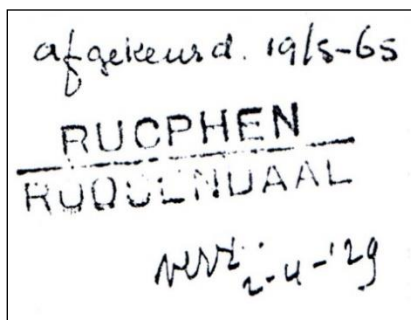 afgekeurd. 19/5-65
RUCPHEN
ROOSENDAAL
verz. 2-4-'29